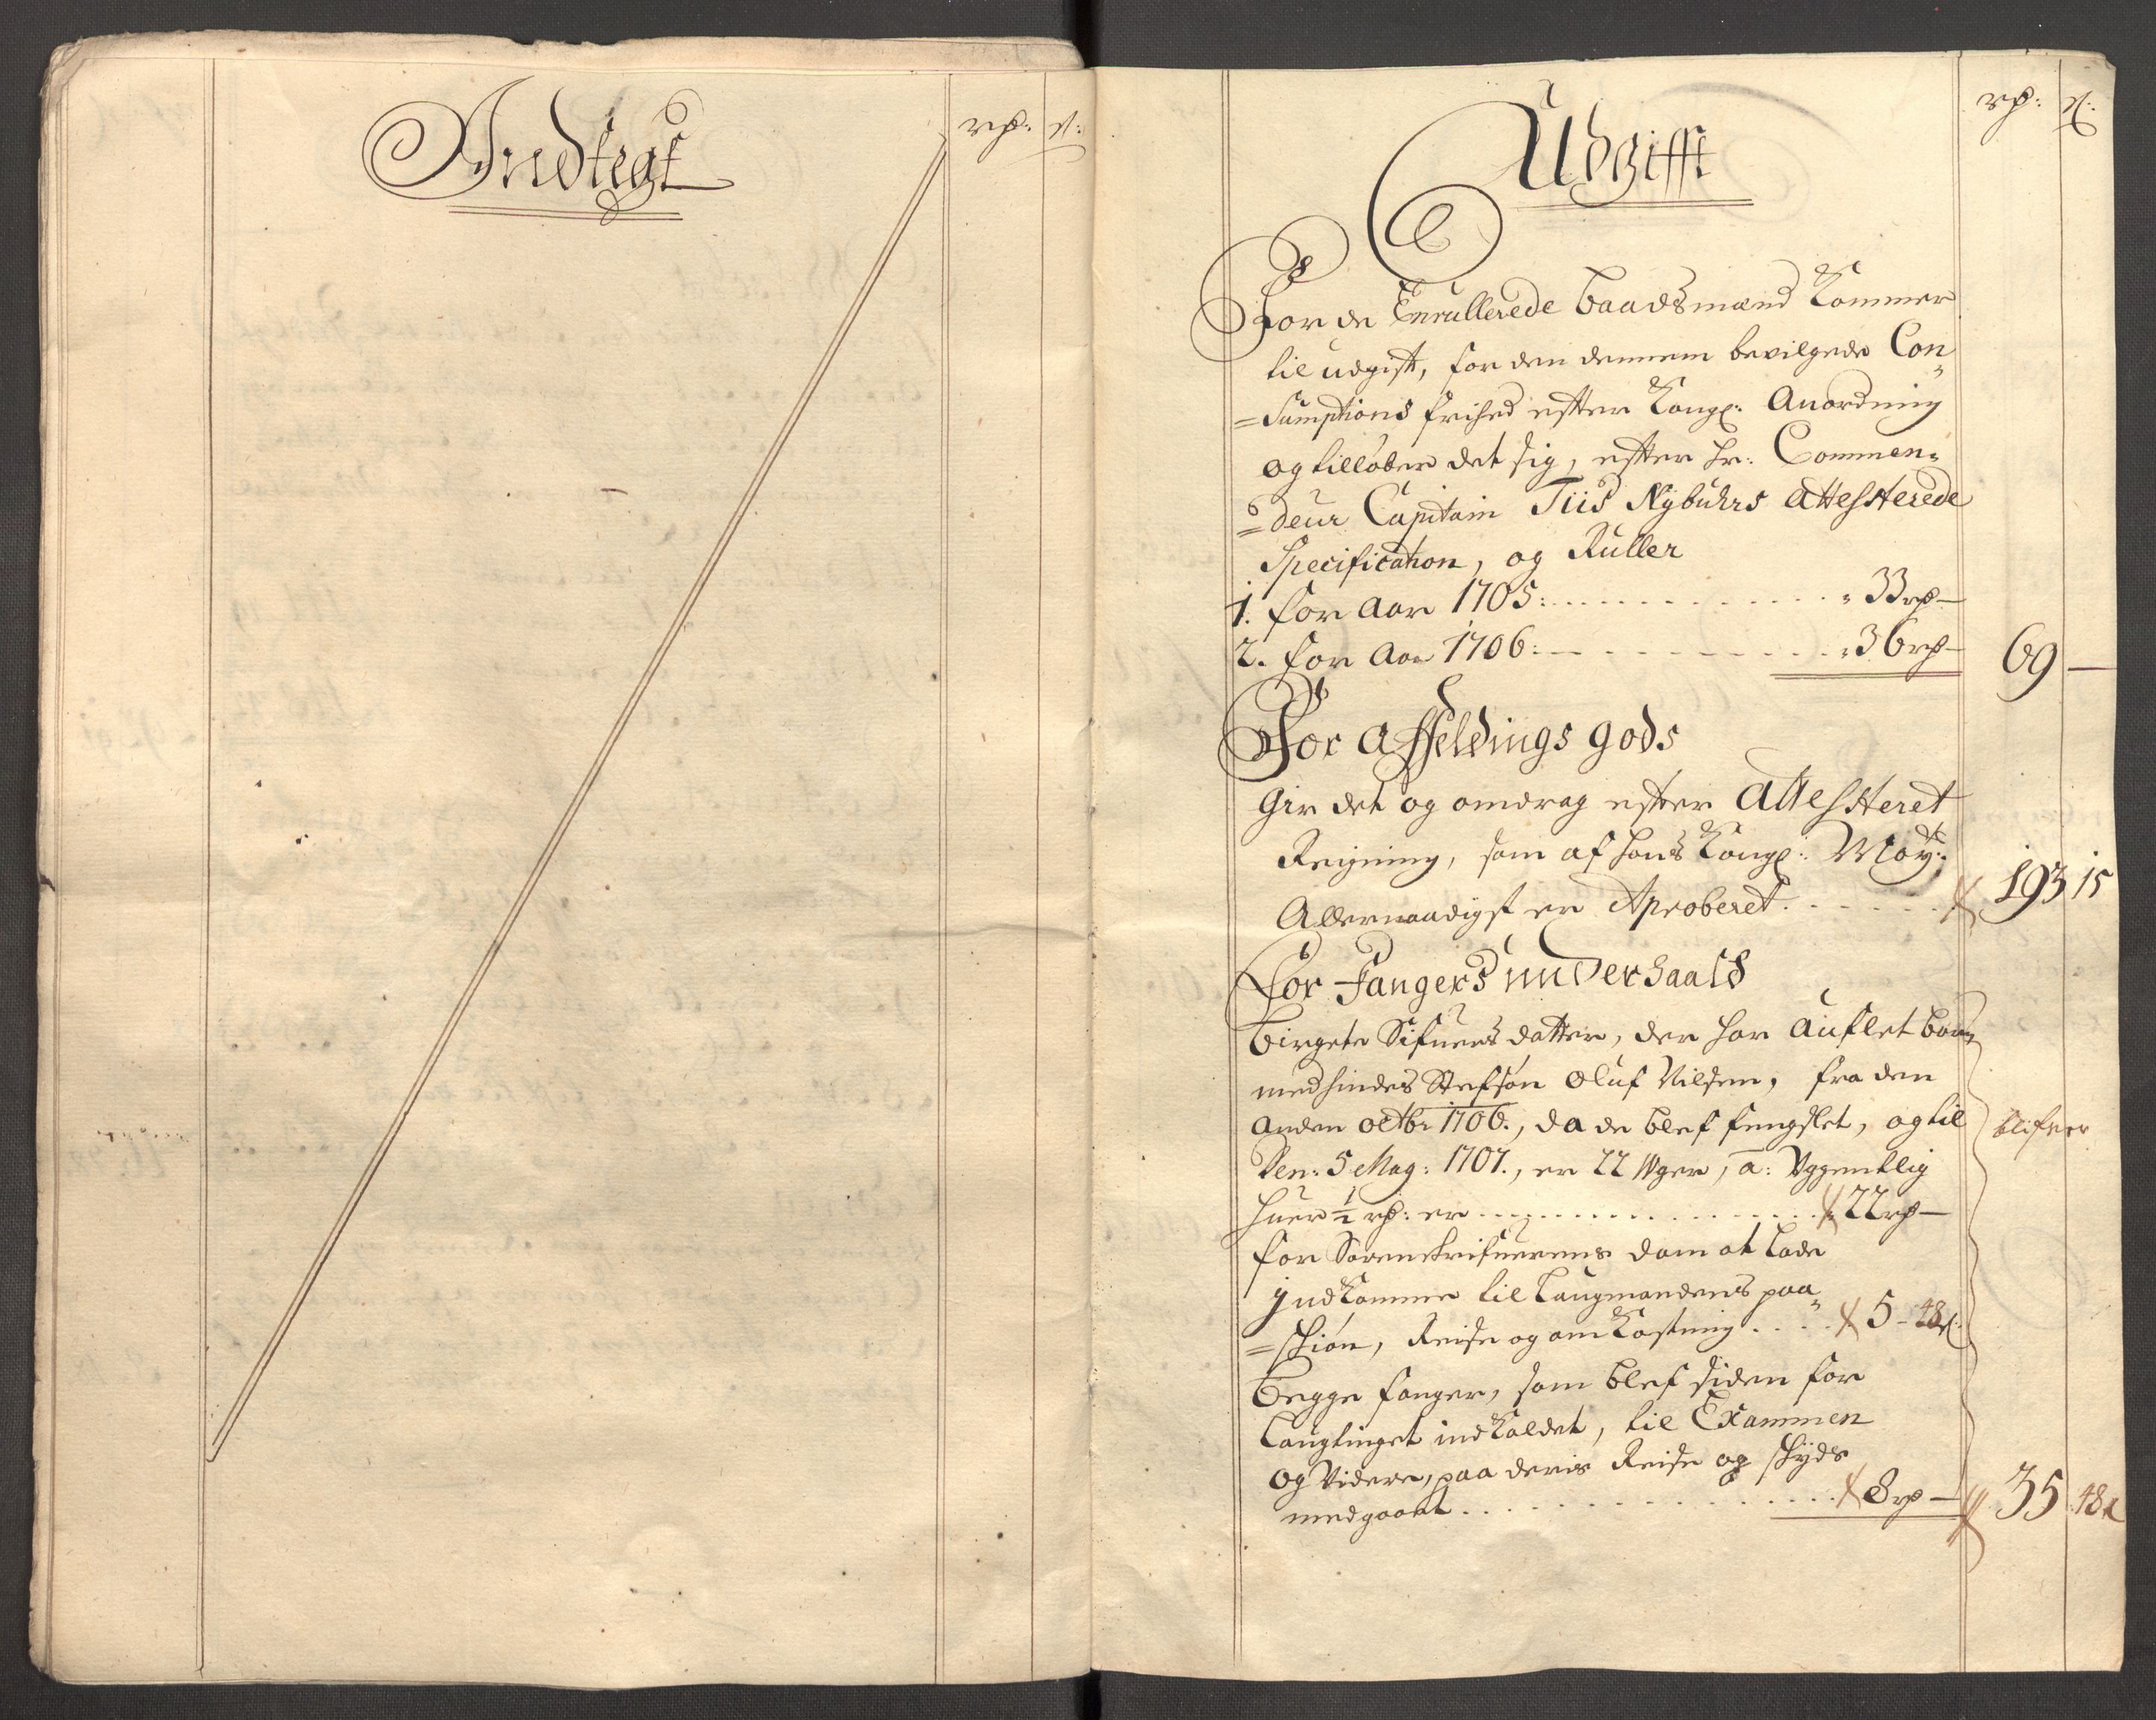 Indtegt
rd: s:
Udgifft
rd: s:
For de Enrullerede baadsmænd kommer
til udgift, for den dennem bevilgede Con
=sumptions frihed efter Kongl: Anordning
og tilløber det sig, efter hr: Commen=
=deur Capitain Tiis Nÿbuhrs attesterede
Specification, og Ruller
1. for aar 1705: 33rd—
2. for aar 1706: 36rd— 69 —
For affeldings gods
Gir det og omdrag efter Attesteret
Reigning, som af hans Kongl: Maÿ:
Allernaadigst er Aproberet 193 15
For Fangers underhaald
Birgete Sifuers datter, der har auflet barn
med hindes Stefsøn Oluf Nilsen, fra den
anden octbr 1706., da de blef fengslet, og til blifver
den: 5 Maÿ: 1707., er 22 Wger, a: Vggentlig
huer ½ rd: er 22rd—
for Sorenskrifuerens dom at lade
jndkomme til Laugmandens paa
=skiøn, Reise og omkostning 5 - 48s.
begge fanger, som blef siden for
Laugtinget indkaldet, til Exammen
og Videre, paa deris Reise og skÿds
medgaaet 8rd— 35 48s